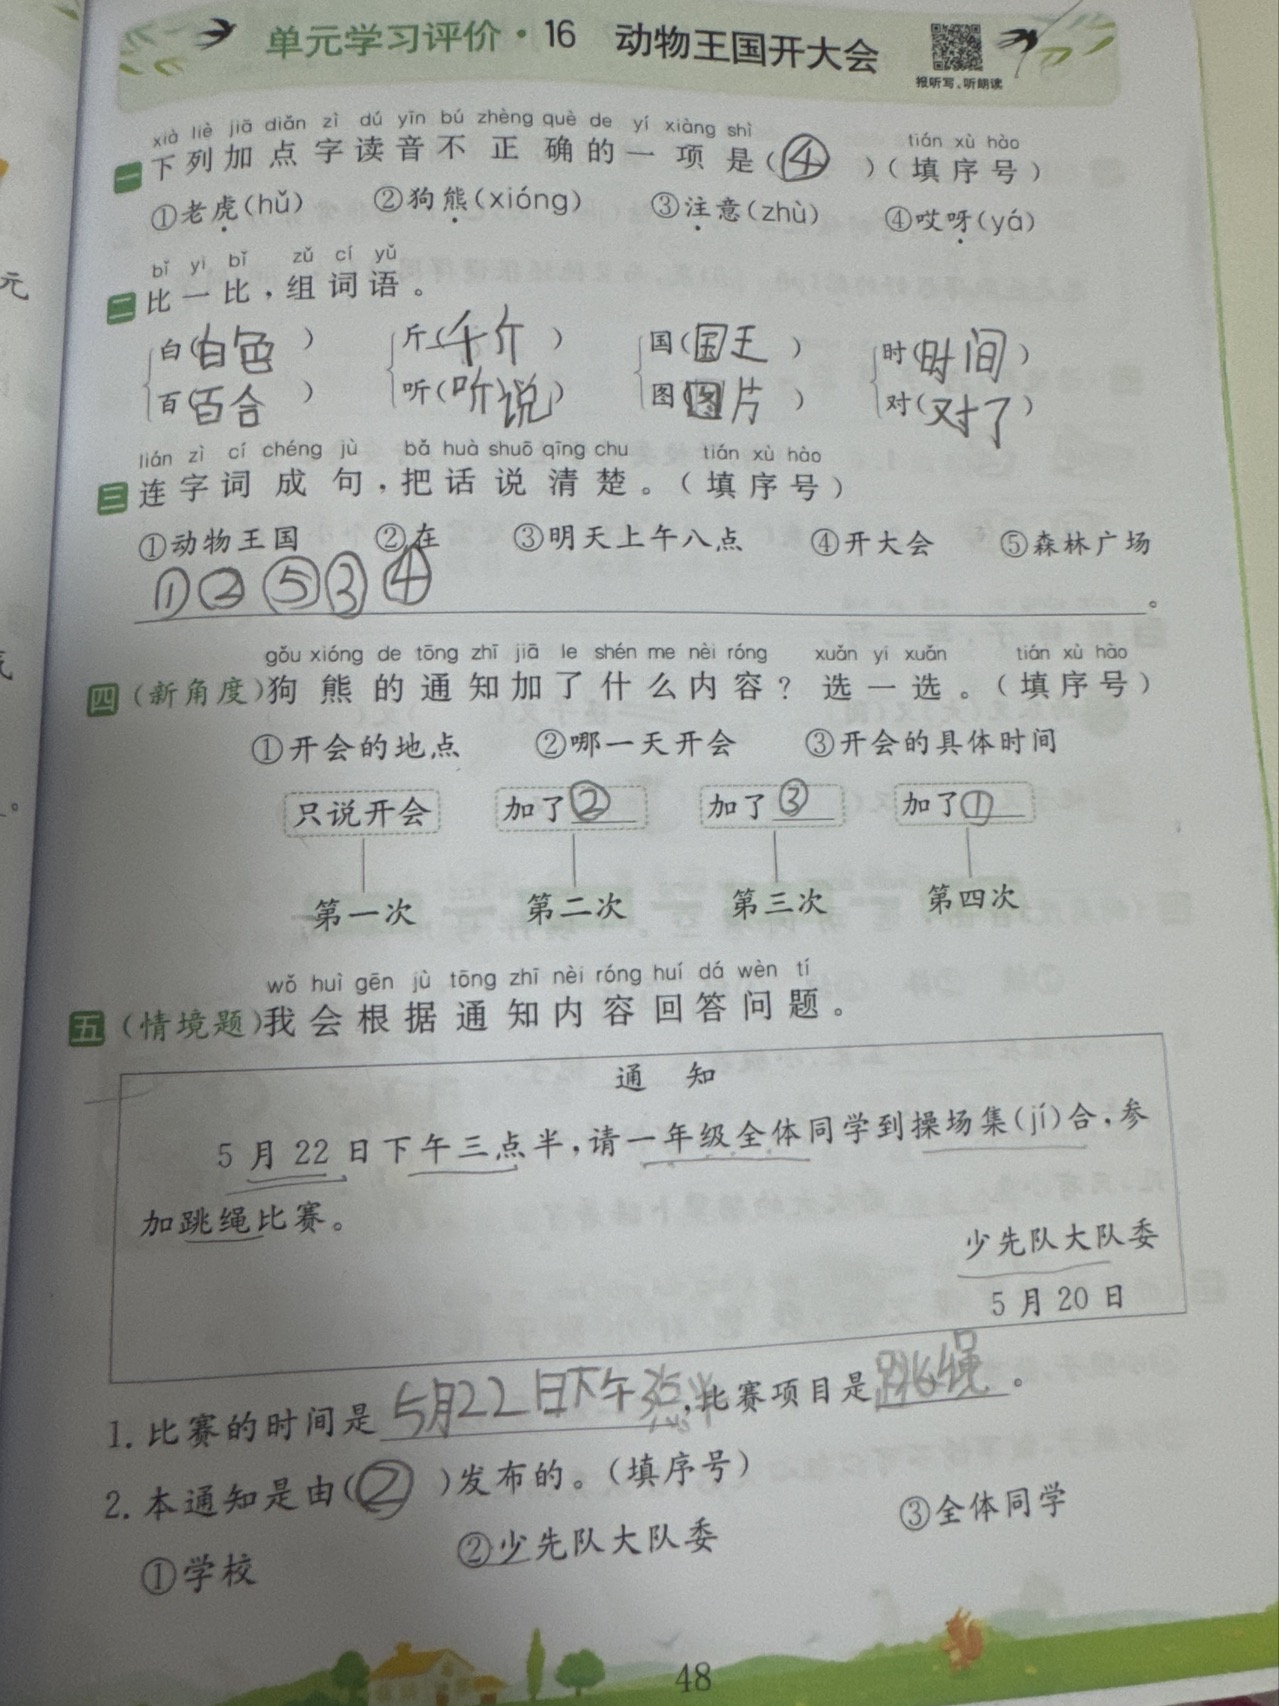 单元学习评价·16 动物王国开大会
报听写、听朗读
xià liè jiā diǎn zì dú yīn bú zhèng què de yí xiàng shì tián xù hào
一 下列加点字读音不正确的一项是(④)(填序号)
①老虎(hǔ) ②狗熊(xióng) ③注意(zhù) ④哎呀(yá)
bǐ yi bǐ zǔ cí yǔ
二 比一比,组词语。
白(白色) 斤(千斤) 国(国王) 时(时间)
百(百合) 听(听说) 图(图片) 对(对了)
lián zì cí chéng jù bǎ huà shuō qīng chu tián xù hào
三 连字词成句,把话说清楚。(填序号)
①动物王国 ②在 ③明天上午八点 ④开大会 ⑤森林广场
①②⑤③④。
gǒu xióng de tōng zhī jiā le shén me nèi róng xuǎn yi xuǎn tián xù hào
四 (新角度)狗熊的通知加了什么内容?选一选。(填序号)
①开会的地点 ②哪一天开会 ③开会的具体时间
只说开会 加了② 加了③ 加了①
第一次 第二次 第三次 第四次
wǒ huì gēn jù tōng zhī nèi róng huí dá wèn tí
五 (情境题)我会根据通知内容回答问题。
通 知
5月22日下午三点半,请一年级全体同学到操场集(jí)合,参
加跳绳比赛。
少先队大队委
5月20日
1.比赛的时间是5月22日下午3点半,比赛项目是跳绳。
2.本通知是由(②)发布的。(填序号)
①学校 ②少先队大队委 ③全体同学
48